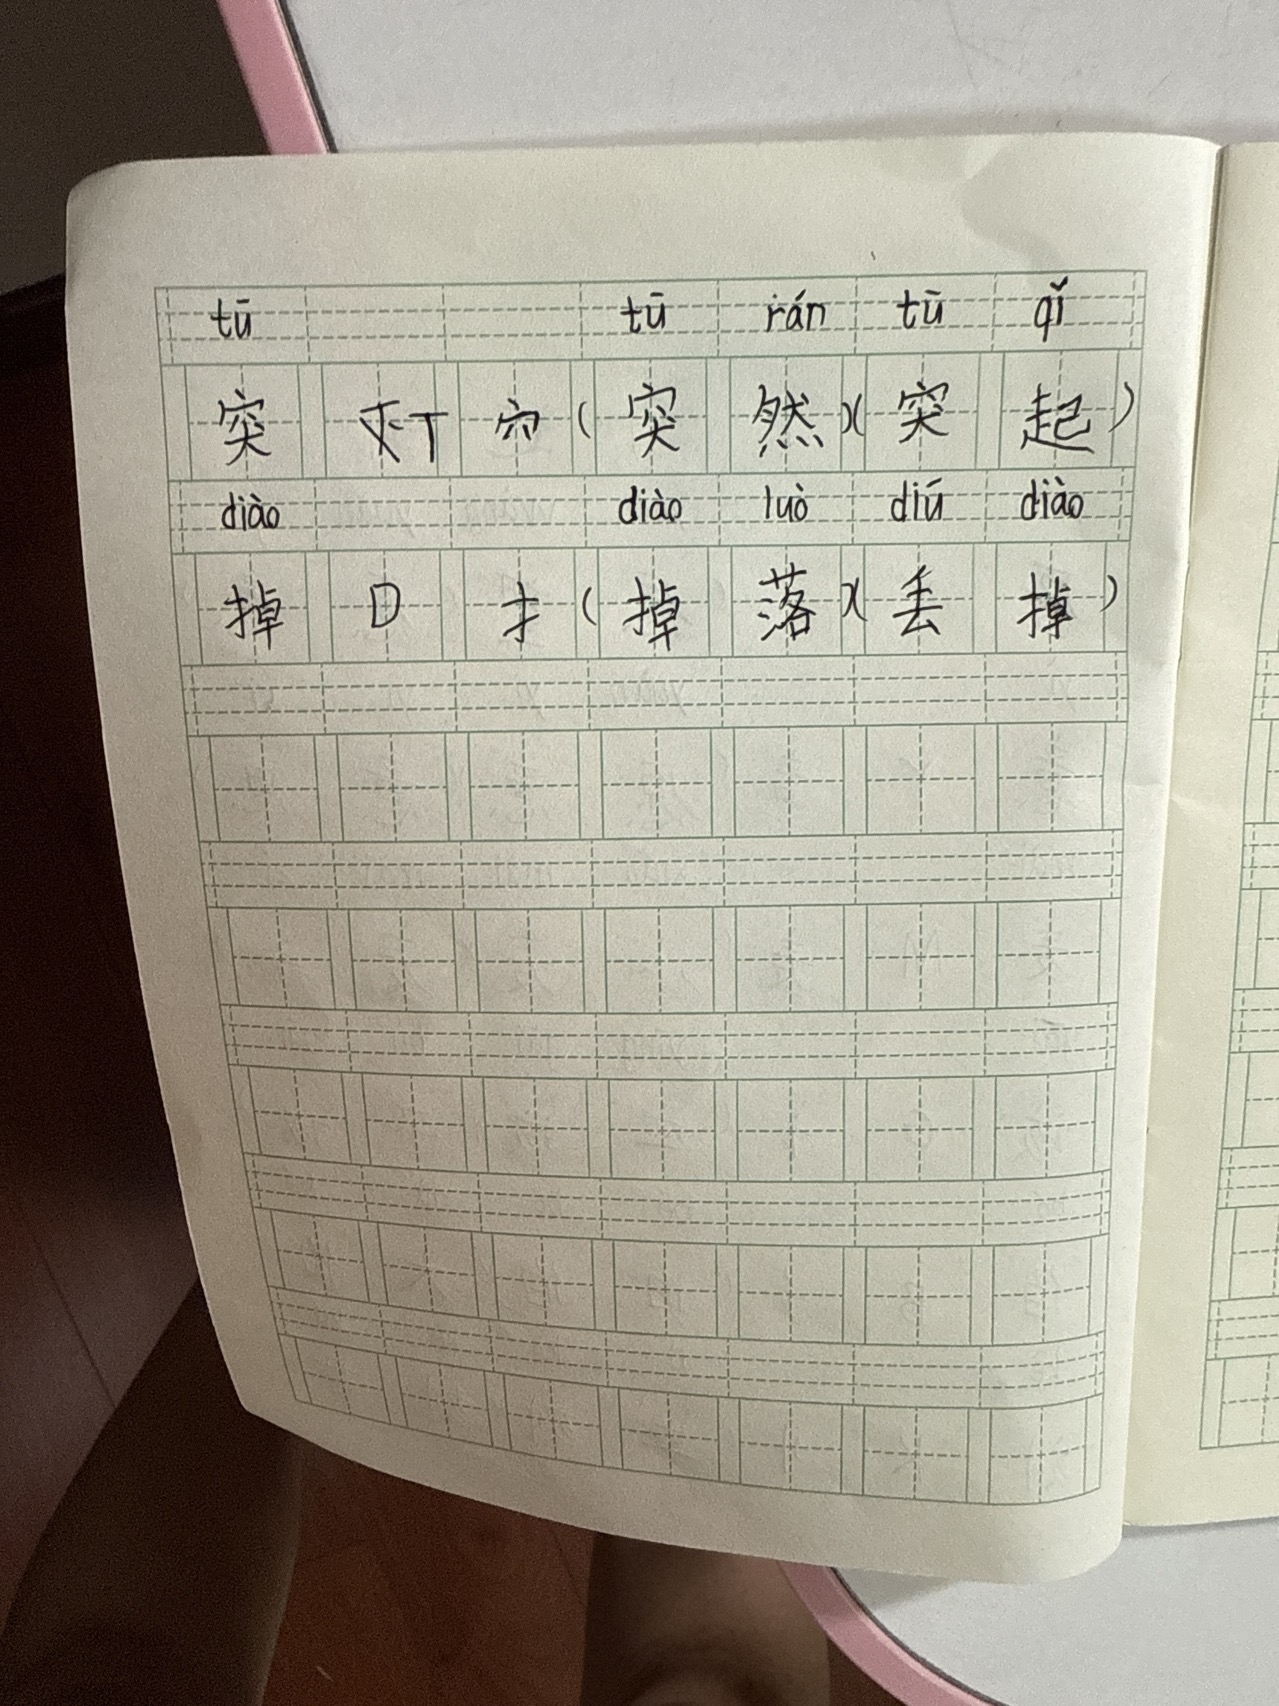 tū tū rán tū qǐ
突 穴 (突然)(突起)
diào diào luò diū diào
掉 D 扌 (掉落)(丢掉)